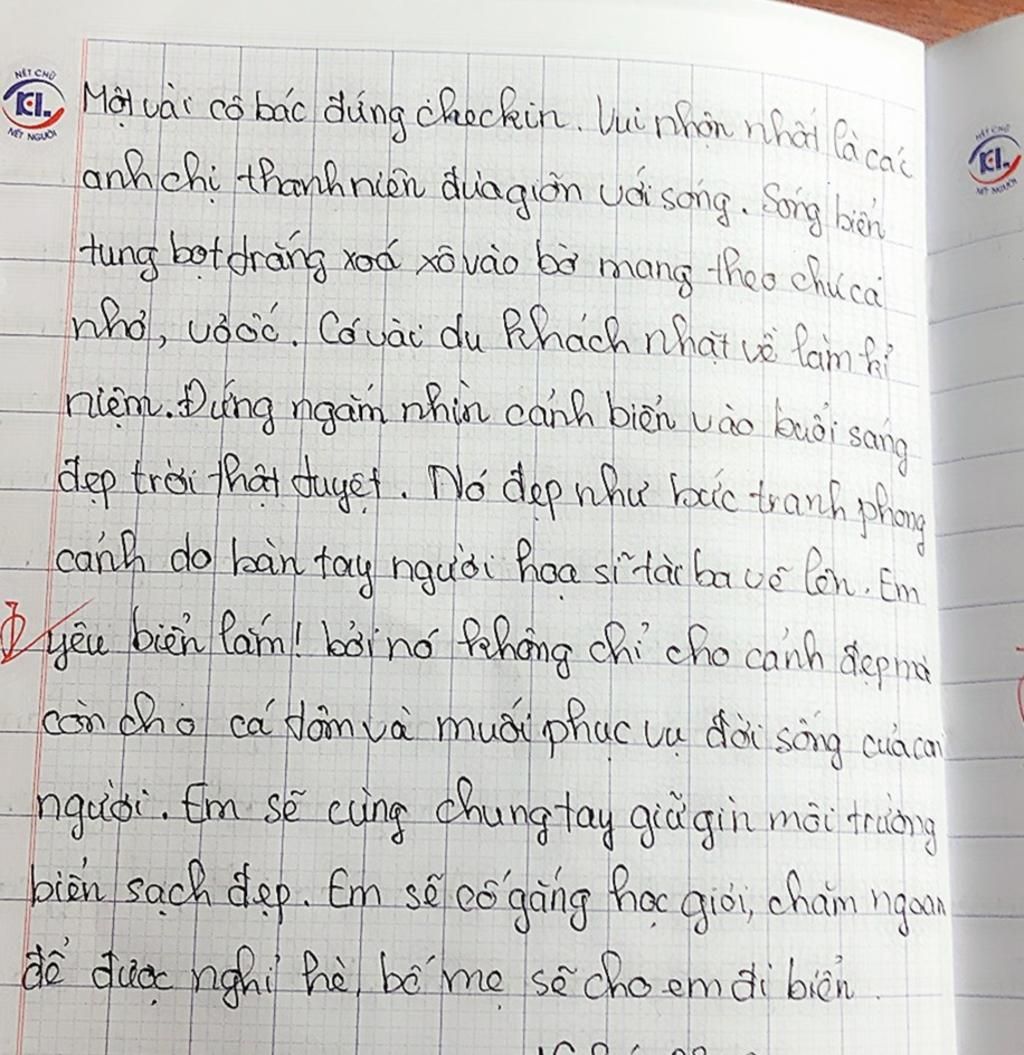 NÉT CHỮ
KL
NẾT NGƯỜI
Một vài cô bác đứng checkin. Vui nhộn nhất là các
anh chị thanh niên đùa giỡn với sóng. Sóng biển
tung bọt trắng xoá xô vào bờ mang theo chú cá
nhỏ, vỏ ốc. Có vài du khách nhặt về làm kỉ
niệm. Đứng ngắm nhìn cảnh biển vào buổi sáng
đẹp trời thật tuyệt. Nó đẹp như bức tranh phong
cảnh do bàn tay người hoạ sĩ tài ba vẽ lên. Em
yêu biển lắm! bởi nó không chỉ cho cảnh đẹp mà
còn cho cá tôm và muối phục vụ đời sống của con
người. Em sẽ cùng chung tay giữ gìn môi trường
biển sạch đẹp. Em sẽ cố gắng học giỏi, chăm ngoan
để được nghỉ hè, bố mẹ sẽ cho em đi biển.
NÉT CHỮ
KL
NẾT NGƯỜI